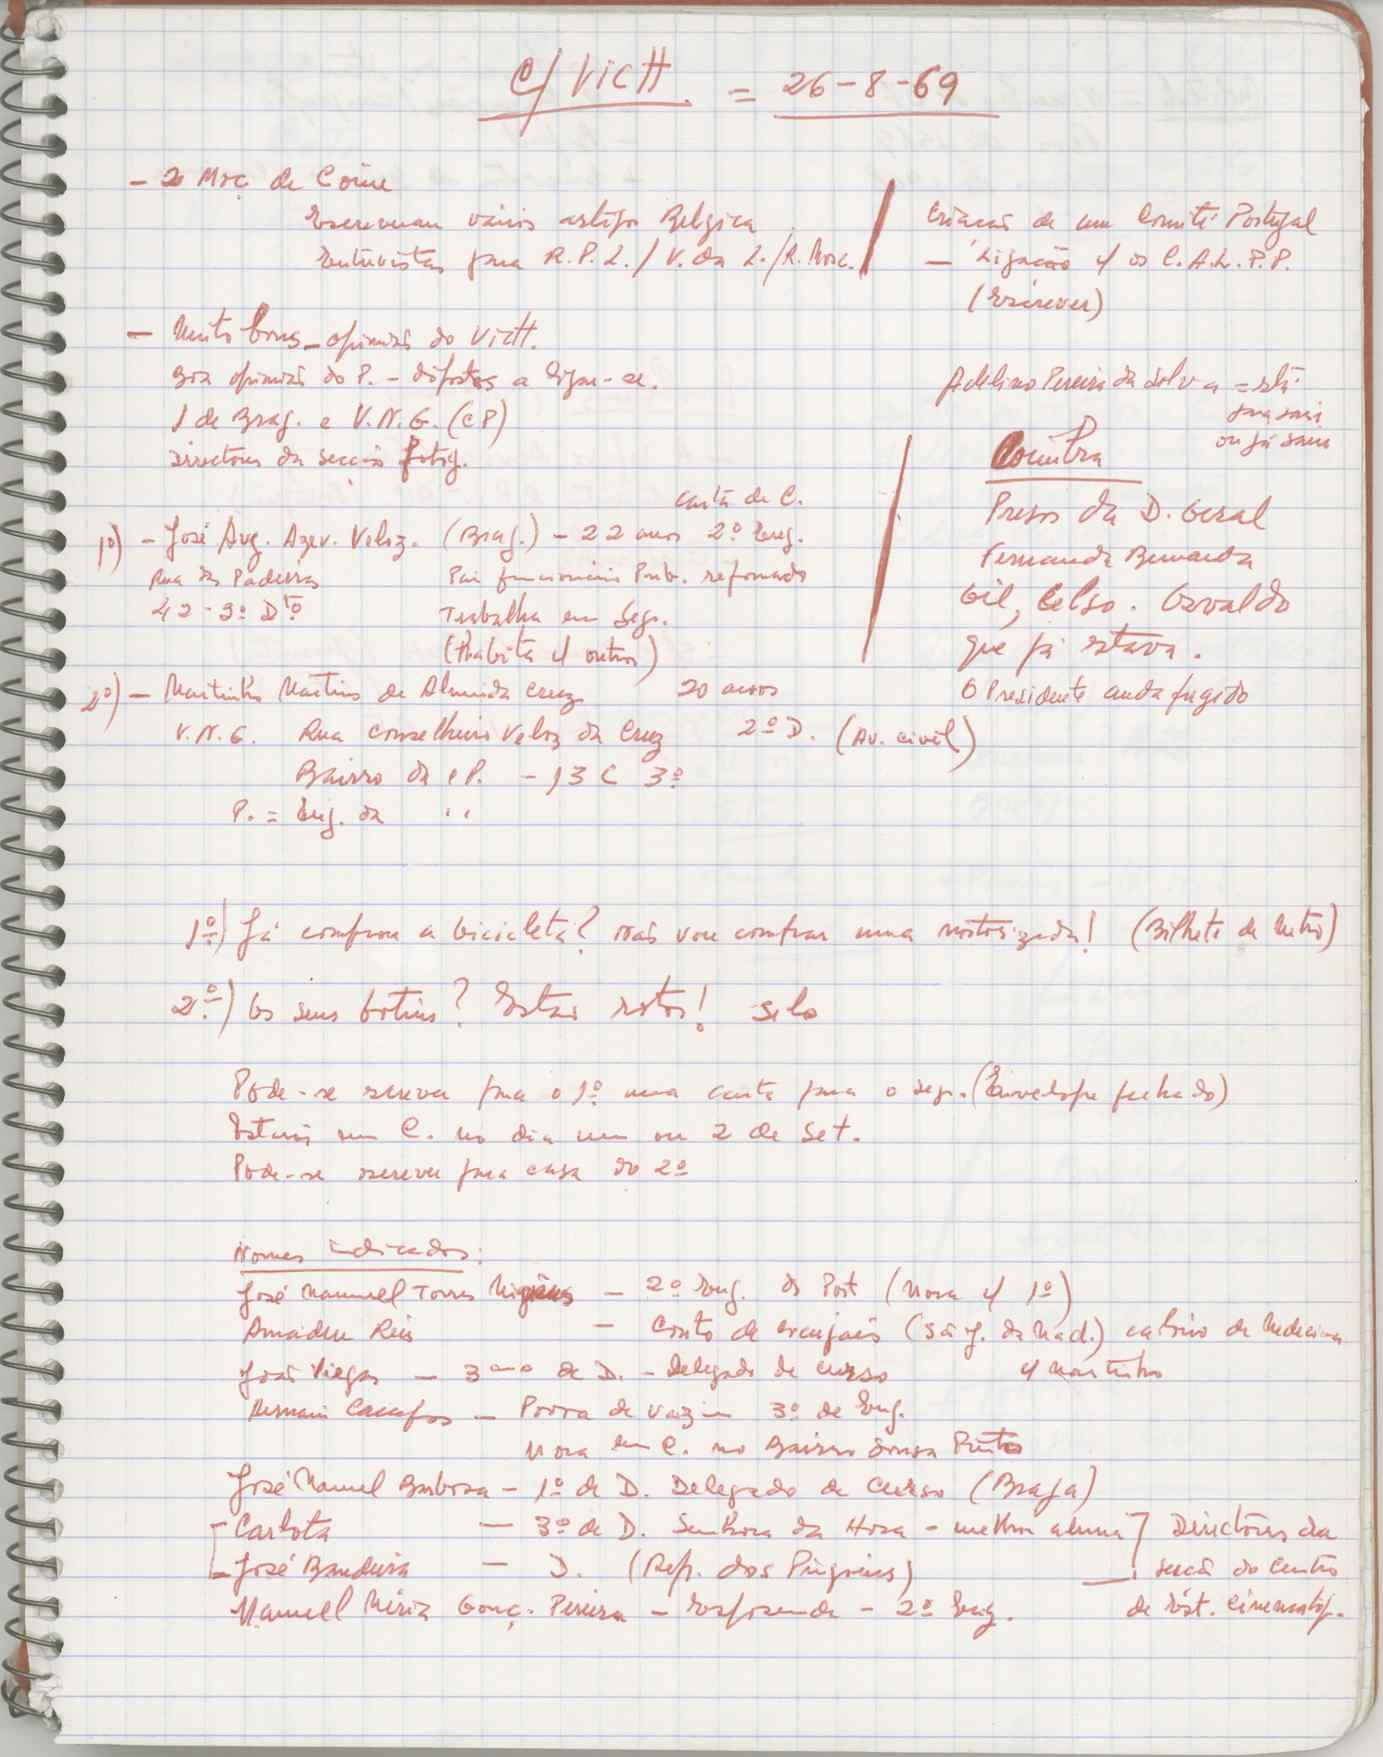 C/ VICH. = 26-8-69
- 2 Moç. de Coim
Escreveram vários artigos Belgica
Entrevistas para R.P.L./ V. da L./R. Mosc.
Criação de um Comité Portugal
- Ligação c/ os C.A.L.P.P.
(Escrever)
- Muito bons - opinião do Vict.
Boa opinião do P. - dispostos a ligar-se.
1 de Brag. e V.N.G. (CP)
Directores da secção fotog.
Adelino Pereira da Silva = está
para sair
ou já saiu
Coimbra
Presos da D. Geral
Fernanda Bernarda
Gil, Celso. Osvaldo
que já estava.
O Presidente anda fugido
carta de C.
1º) - José Aug. Azev. Veloz. (Brag.) - 22 anos 2º Eng.
Rua das Padeiras Pai funcionário Pub. reformado
42-3º Dtº Trabalha em Segr.
(Habita c/ outros)
2º) - Martinho Martins de Almeida Cruz 20 anos
V.N.G. Rua Conselheiro Veloz da Cruz 2º D. (Av. civil)
Bairro da CP. - 13 C 3º
P. = Eng. da " "
1º) Já comprou a bicicleta? Não vou comprar uma motorizada! (Bilhete de Metro)
2º) Os seus botins? Estão rotos! Selo
Pode-se escrever para o 1º uma carta para o segr. (Envelope fechado)
Estarão em C. no dia um ou 2 de Set.
Pode-se escrever para casa do 2º
Nomes indicados:
José Manuel Torres - 2º Eng. do Port (Mora c/ 1º)
Amadeu Reis - Couto de (S. J. da Mad.) de Medicina
c/ Martinho
João Viegas - 3º ano de D. - Delegado de curso
Campos - Povoa de Varzim 3º de Eng.
Mora em C. no Bairro Sousa Pinto
José Manuel Barbosa - 1º de D. Delegado de Curso (Braga)
Carlota - 3º de D. Senhora da Hora - melhor aluna
José Bandeira - D. (Rep. dos Pigmeus)
Directores da
secção do Centro
de Est. Cinematog.
Manuel Gonç. Pereira - Esposende - 2º Eng.